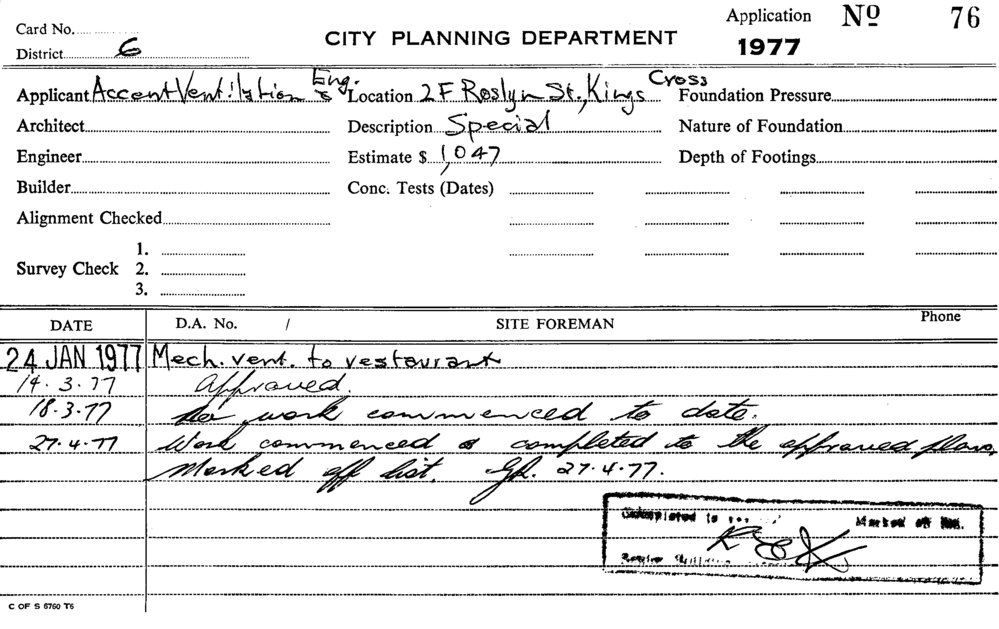 Card No.
Application No 76
CITY PLANNING DEPARTMENT
1977
District 6
Applicant Accent Ventilation Eng. Location 2F Roslyn St., Kings Cross Foundation Pressure
Architect Description Special Nature of Foundation
Engineer Estimate $ 1,047 Depth of Footings
Builder Conc. Tests (Dates)
Alignment Checked
1.
Survey Check 2.
3.
DATE D.A. No. / SITE FOREMAN Phone
24 JAN 1977 Mech. vent. to restaurant
14.3.77 Approved.
18.3.77 No work commenced to date.
27.4.77 Work commenced & completed to the approved plans.
Marked off list. 27.4.77.
Completed to Marked off
C OF S 6760 T6